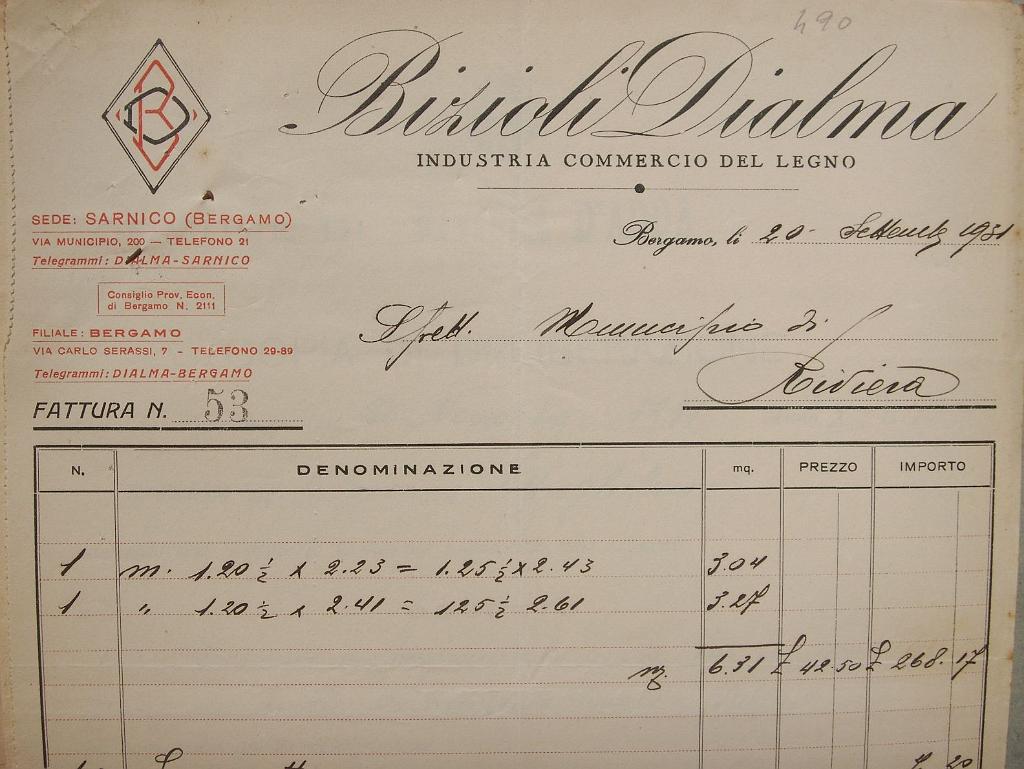 490
BD
Bizioli Dialma
INDUSTRIA COMMERCIO DEL LEGNO
SEDE: SARNICO (BERGAMO)
VIA MUNICIPIO, 200 — TELEFONO 21
Telegrammi: DIALMA-SARNICO
Consiglio Prov. Econ.
di Bergamo N. 2111
FILIALE: BERGAMO
VIA CARLO SERASSI, 7 - TELEFONO 29-89
Telegrammi: DIALMA-BERGAMO
FATTURA N. 53
Bergamo, li 20 - Settemb 1931
Spett. Municipio di
Riviera
N. DENOMINAZIONE mq. PREZZO IMPORTO
1 m. 1.20 ½ x 2.23 = 1.25 ½ x 2.43 3.04
1 " 1.20 ½ x 2.41 = 125 ½ 2.61 3.27
mq. 6.31 £ 42.50 £ 268.17
20